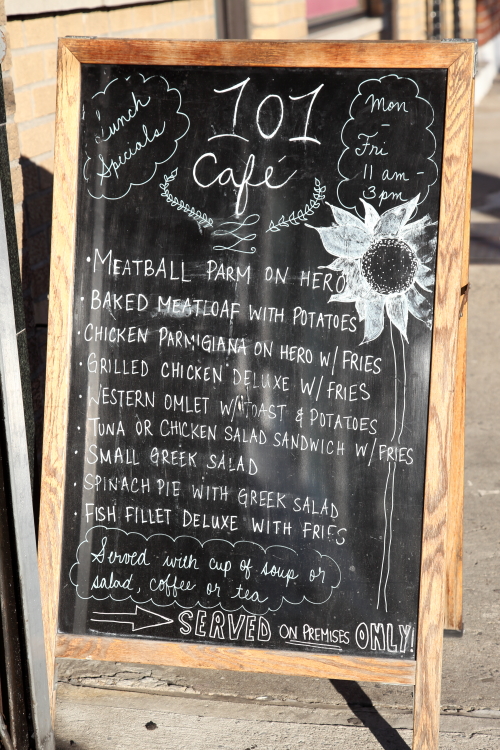 Lunch
Specials
101
Café
Mon
-
Fri
11 am -
3pm
· MEATBALL PARM ON HERO
· BAKED MEATLOAF WITH POTATOES
· CHICKEN PARMIGIANA ON HERO W/ FRIES
· GRILLED CHICKEN DELUXE W/ FRIES
· WESTERN OMLET W/ TOAST & POTATOES
· TUNA OR CHICKEN SALAD SANDWICH W/ FRIES
· SMALL GREEK SALAD
· SPINACH PIE WITH GREEK SALAD
· FISH FILLET DELUXE WITH FRIES
Served with cup of soup or
salad, coffee or tea
SERVED ON PREMISES ONLY!